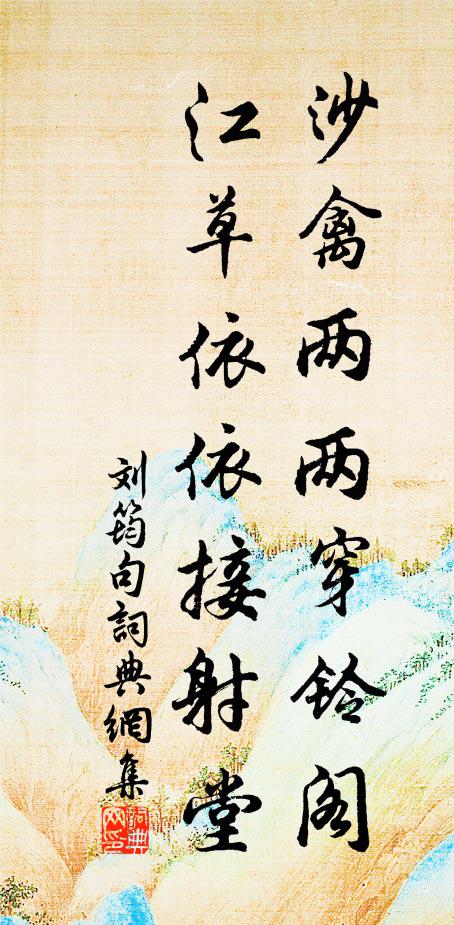 沙禽两两穿铃阁
江草依依接射堂
刘筠句詞典網集
詞典